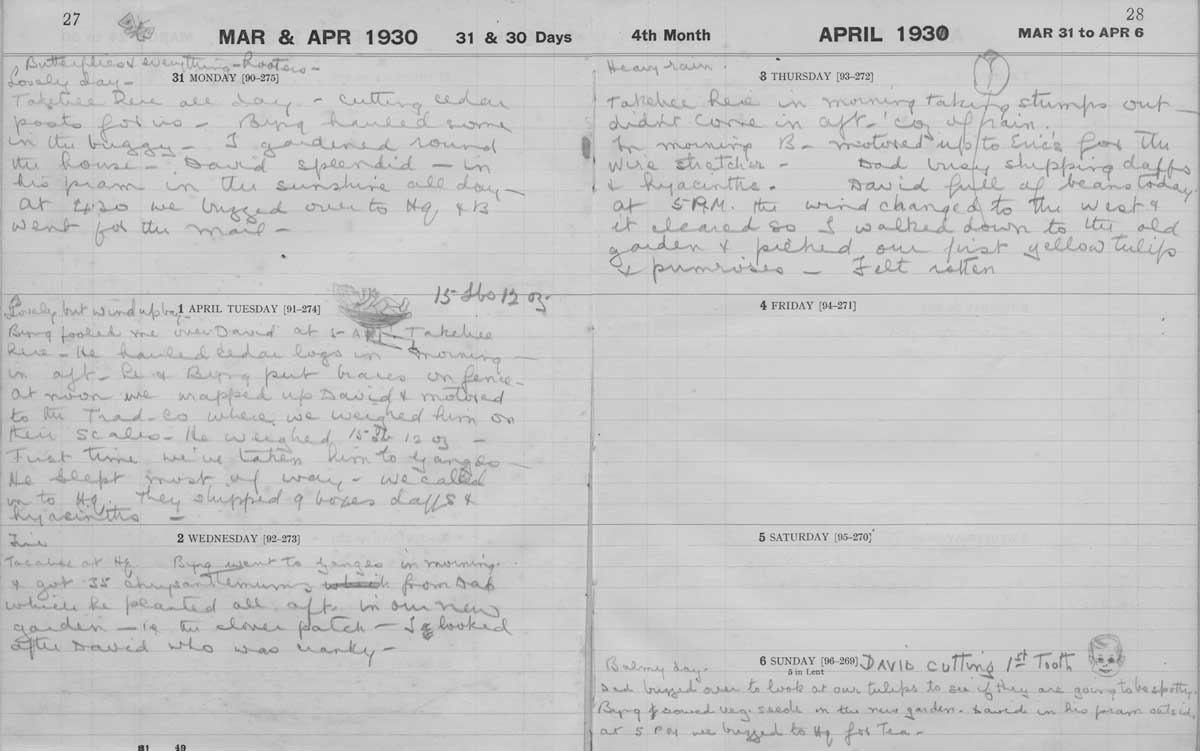 27
MAR & APR 1930
31 & 30 Days
Butterflies & everything - Rooters -
Lovely day -
31 MONDAY [90-275]
Takehee here all day - cutting cedar
posts for us - Byng hauled some
in the buggy - I gardened round
the house - David splendid - in
his pram in the sunshine all day -
at 4.20 we buzzed over to Hq & B
went for the mail -
Lovely but wind up bay -
1 APRIL TUESDAY [91-274]
15 lbs 12 oz.
Byng fooled me over David at 5- A.M. Takehee
here - He hauled cedar logs in morning -
in aft - he & Byng put braces on fence -
at noon we wrapped up David & motored
to the Trad- Co where we weighed him on
their scales - He weighed 15 lb 12 oz -
First time we've taken him to Ganges -
He slept most of way - we called
in to Hq. They shipped 9 boxes daffs &
hyacinths -
Fine
2 WEDNESDAY [92-273]
at Hq. Byng went to Ganges in morning.
& got 35 chrysanthemums from Dab
which he planted all aft. in our new
garden - in the clover patch - I looked
after David who was cranky -
31 49
4th Month
APRIL 1930
28
MAR 31 to APR 6
Heavy rain.
3 THURSDAY [93-272]
Takehee here in morning taking stumps out -
didn't come in aft - 'coz of rain.
In morning B - motored up to Eric's for the
wire stretcher - Dad busy shipping daffs
& hyacinths. David full of beans today
at 5 P.M. the wind changed to the West &
it cleared so I walked down to the old
garden & picked our first yellow tulips
& primroses - Felt rotten
4 FRIDAY [94-271]
5 SATURDAY [95-270]
Balmy day.
6 SUNDAY [96-269]
5 in Lent
DAVID cutting 1st Tooth
Dad buzzed over to look at our tulips to see if they are going to be spotty.
Byng & sowed veg. seeds in the new garden. David in his pram outside,
at 5 PM we buzzed to Hq for Tea -